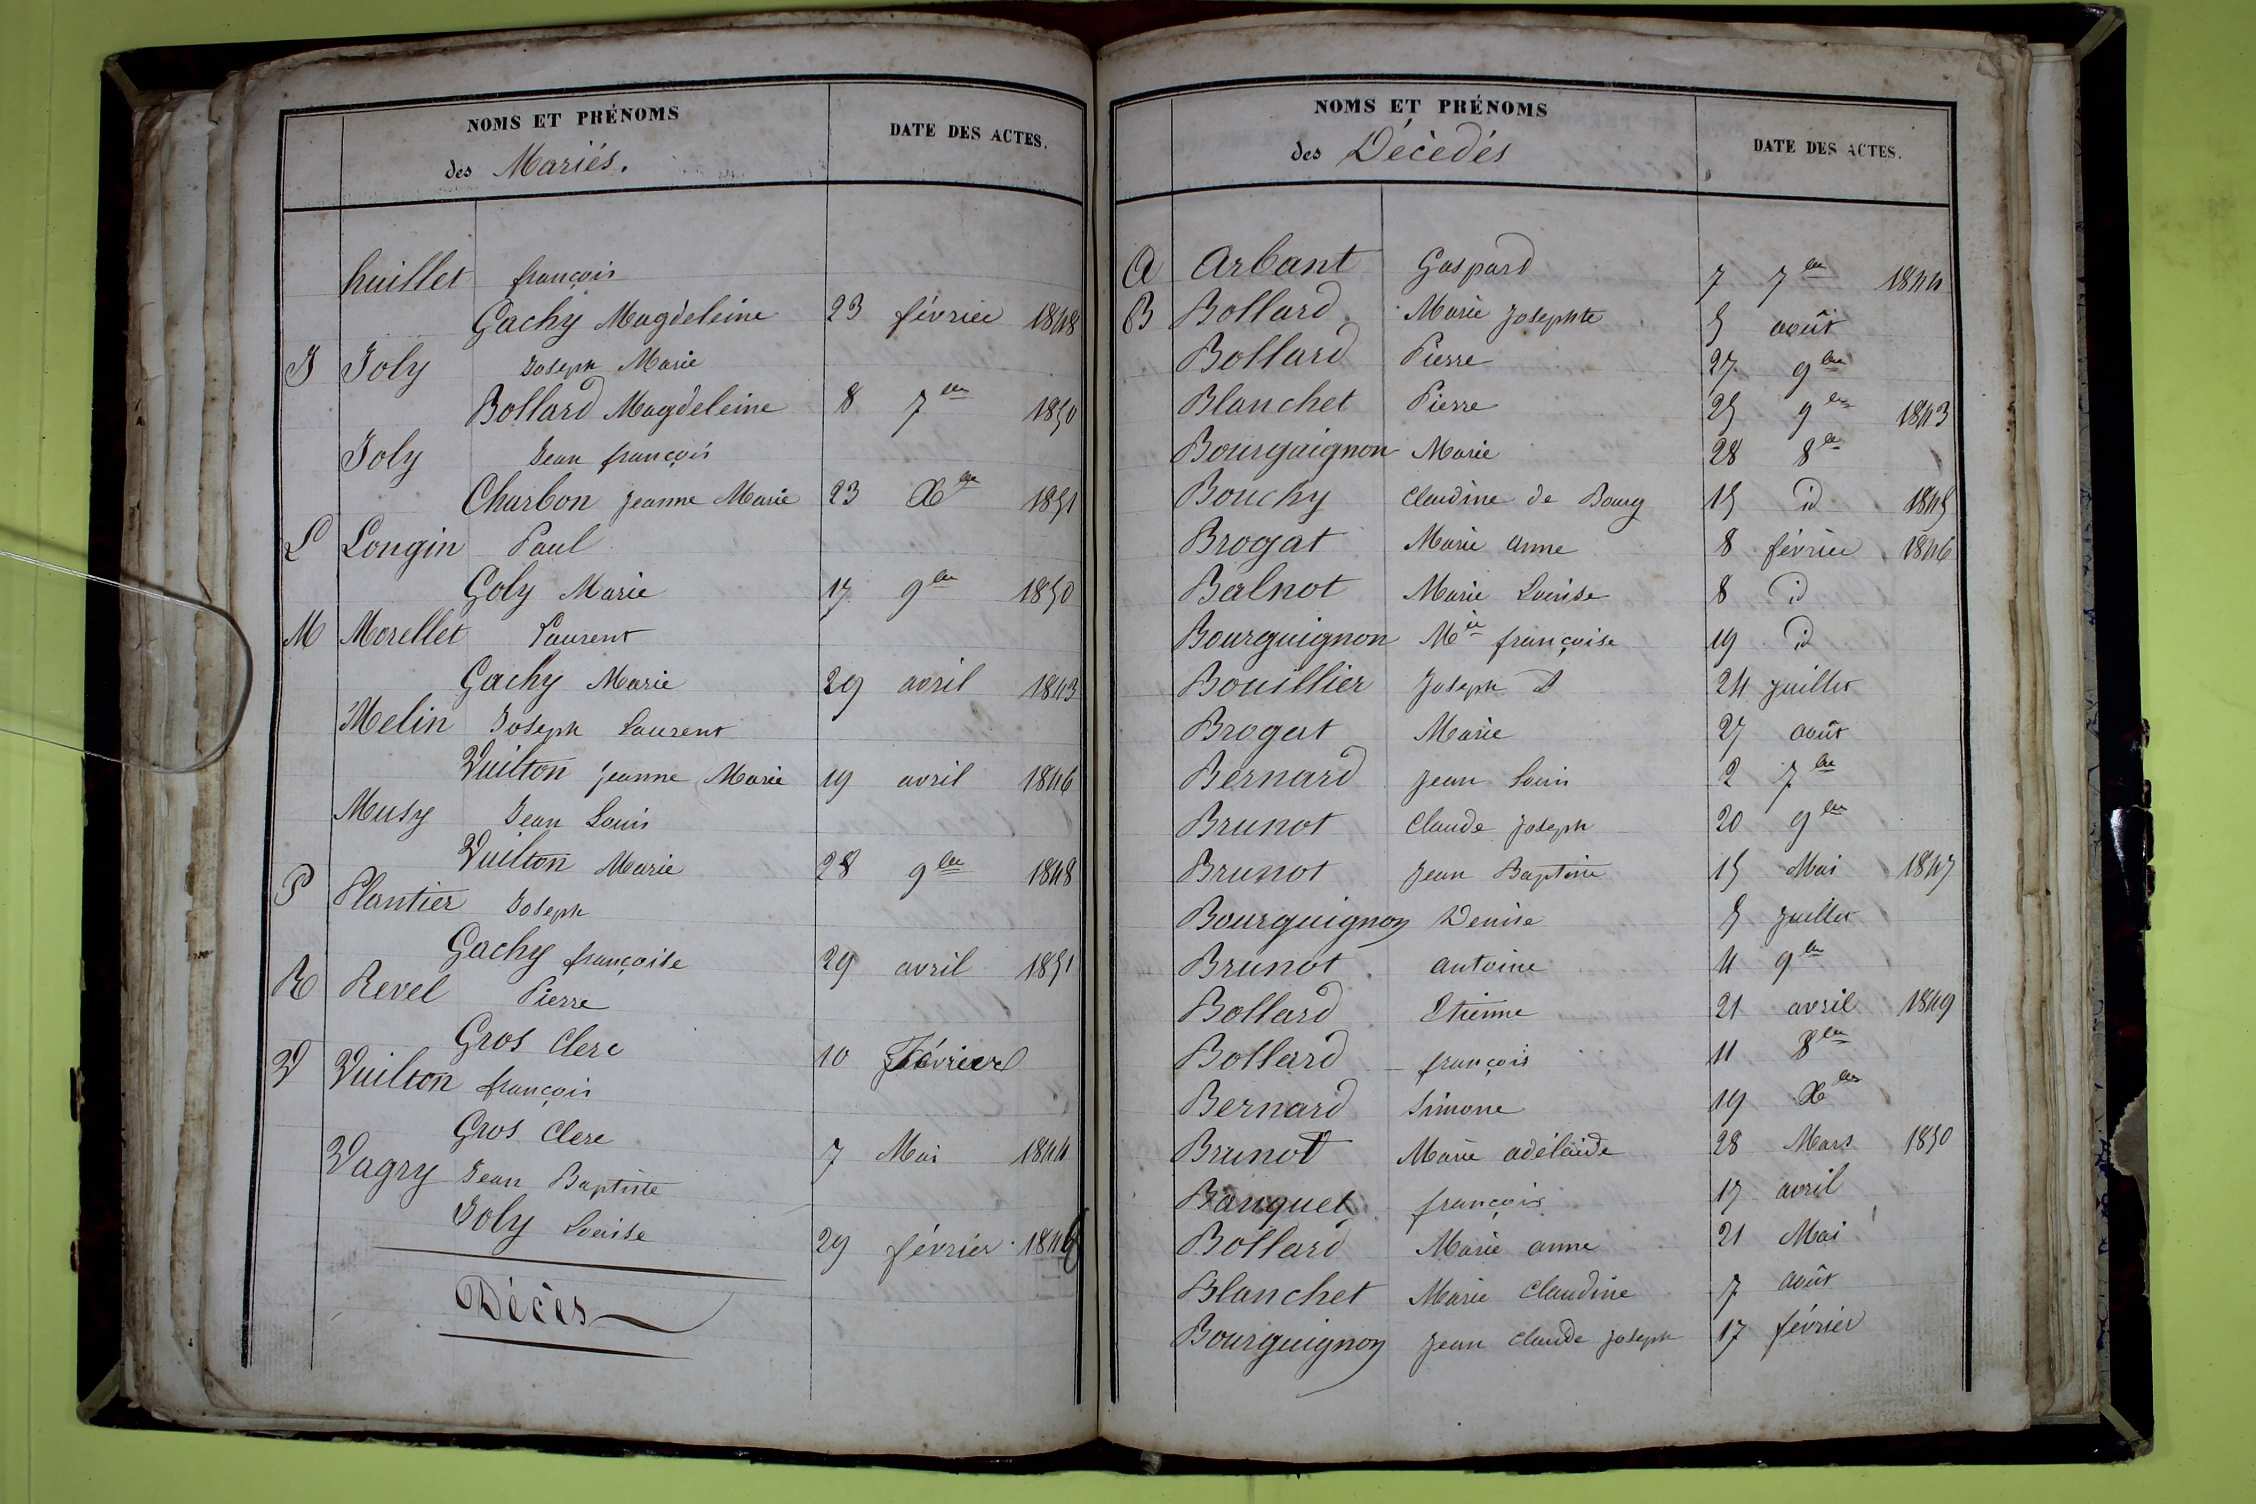 NOMS ET PRÉNOMS
des Mariés.
DATE DES ACTES.
huillet françois
Gachy Magdeleine 23 février 1848
J Joly Joseph Marie
Bollard Magdeleine 8 7bre 1850
Joly Jean françois
Charbon Jeanne Marie 23 Xbre 1851
L Longin Paul
Goly Marie 17 9bre 1850
M Morellet Laurent
Gachy Marie 29 avril 1843
Melin Joseph Laurent
Vuilton Jeanne Marie 19 avril 1846
Musy Jean Louis
Vuilton Marie 28 9bre 1848
P Plantier Joseph
Gachy françoise 29 avril 1851
R Revel Pierre
Gros Clerc 10 Février
V Vuilton françois
Gros Clerc 7 Mai 1844
Vagry Jean Baptiste
Joly Louise 29 février 1846
Décès
NOMS ET PRÉNOMS
des Décèdés
DATE DES ACTES.
A Arbant Gaspard 7 7bre 1844
B Bollard Marie Josephte 5 août
Bollard Pierre 27 9bre
Blanchet Pierre 25 9bre 1843
Bourguignon Marie 28 8bre
Bouchy Claudine de Bourg 15 id 1845
Brogat Marie Anne 8 février 1846
Balnot Marie Louise 8 id
Bourguignon Mie françoise 19 id
Bouillier Joseph D 24 juillet
Brogat Marie 27 août
Bernard Jean Louis 2 7bre
Brunot Claude Joseph 20 9bre
Brunot Jean Baptiste 15 Mai 1847
Bourguignon Denise 5 juillet
Brunot antoine 11 9bre
Bollard Etienne 21 avril 1849
Bollard françois 11 8bre
Bernard Simone 19 Xbre
Brunot Marie adélaïde 28 Mars 1850
Banquet françois 17 avril
Bollard Marie anne 21 Mai
Blanchet Marie Claudine 7 août
Bourguignon Jean Claude Joseph 17 février